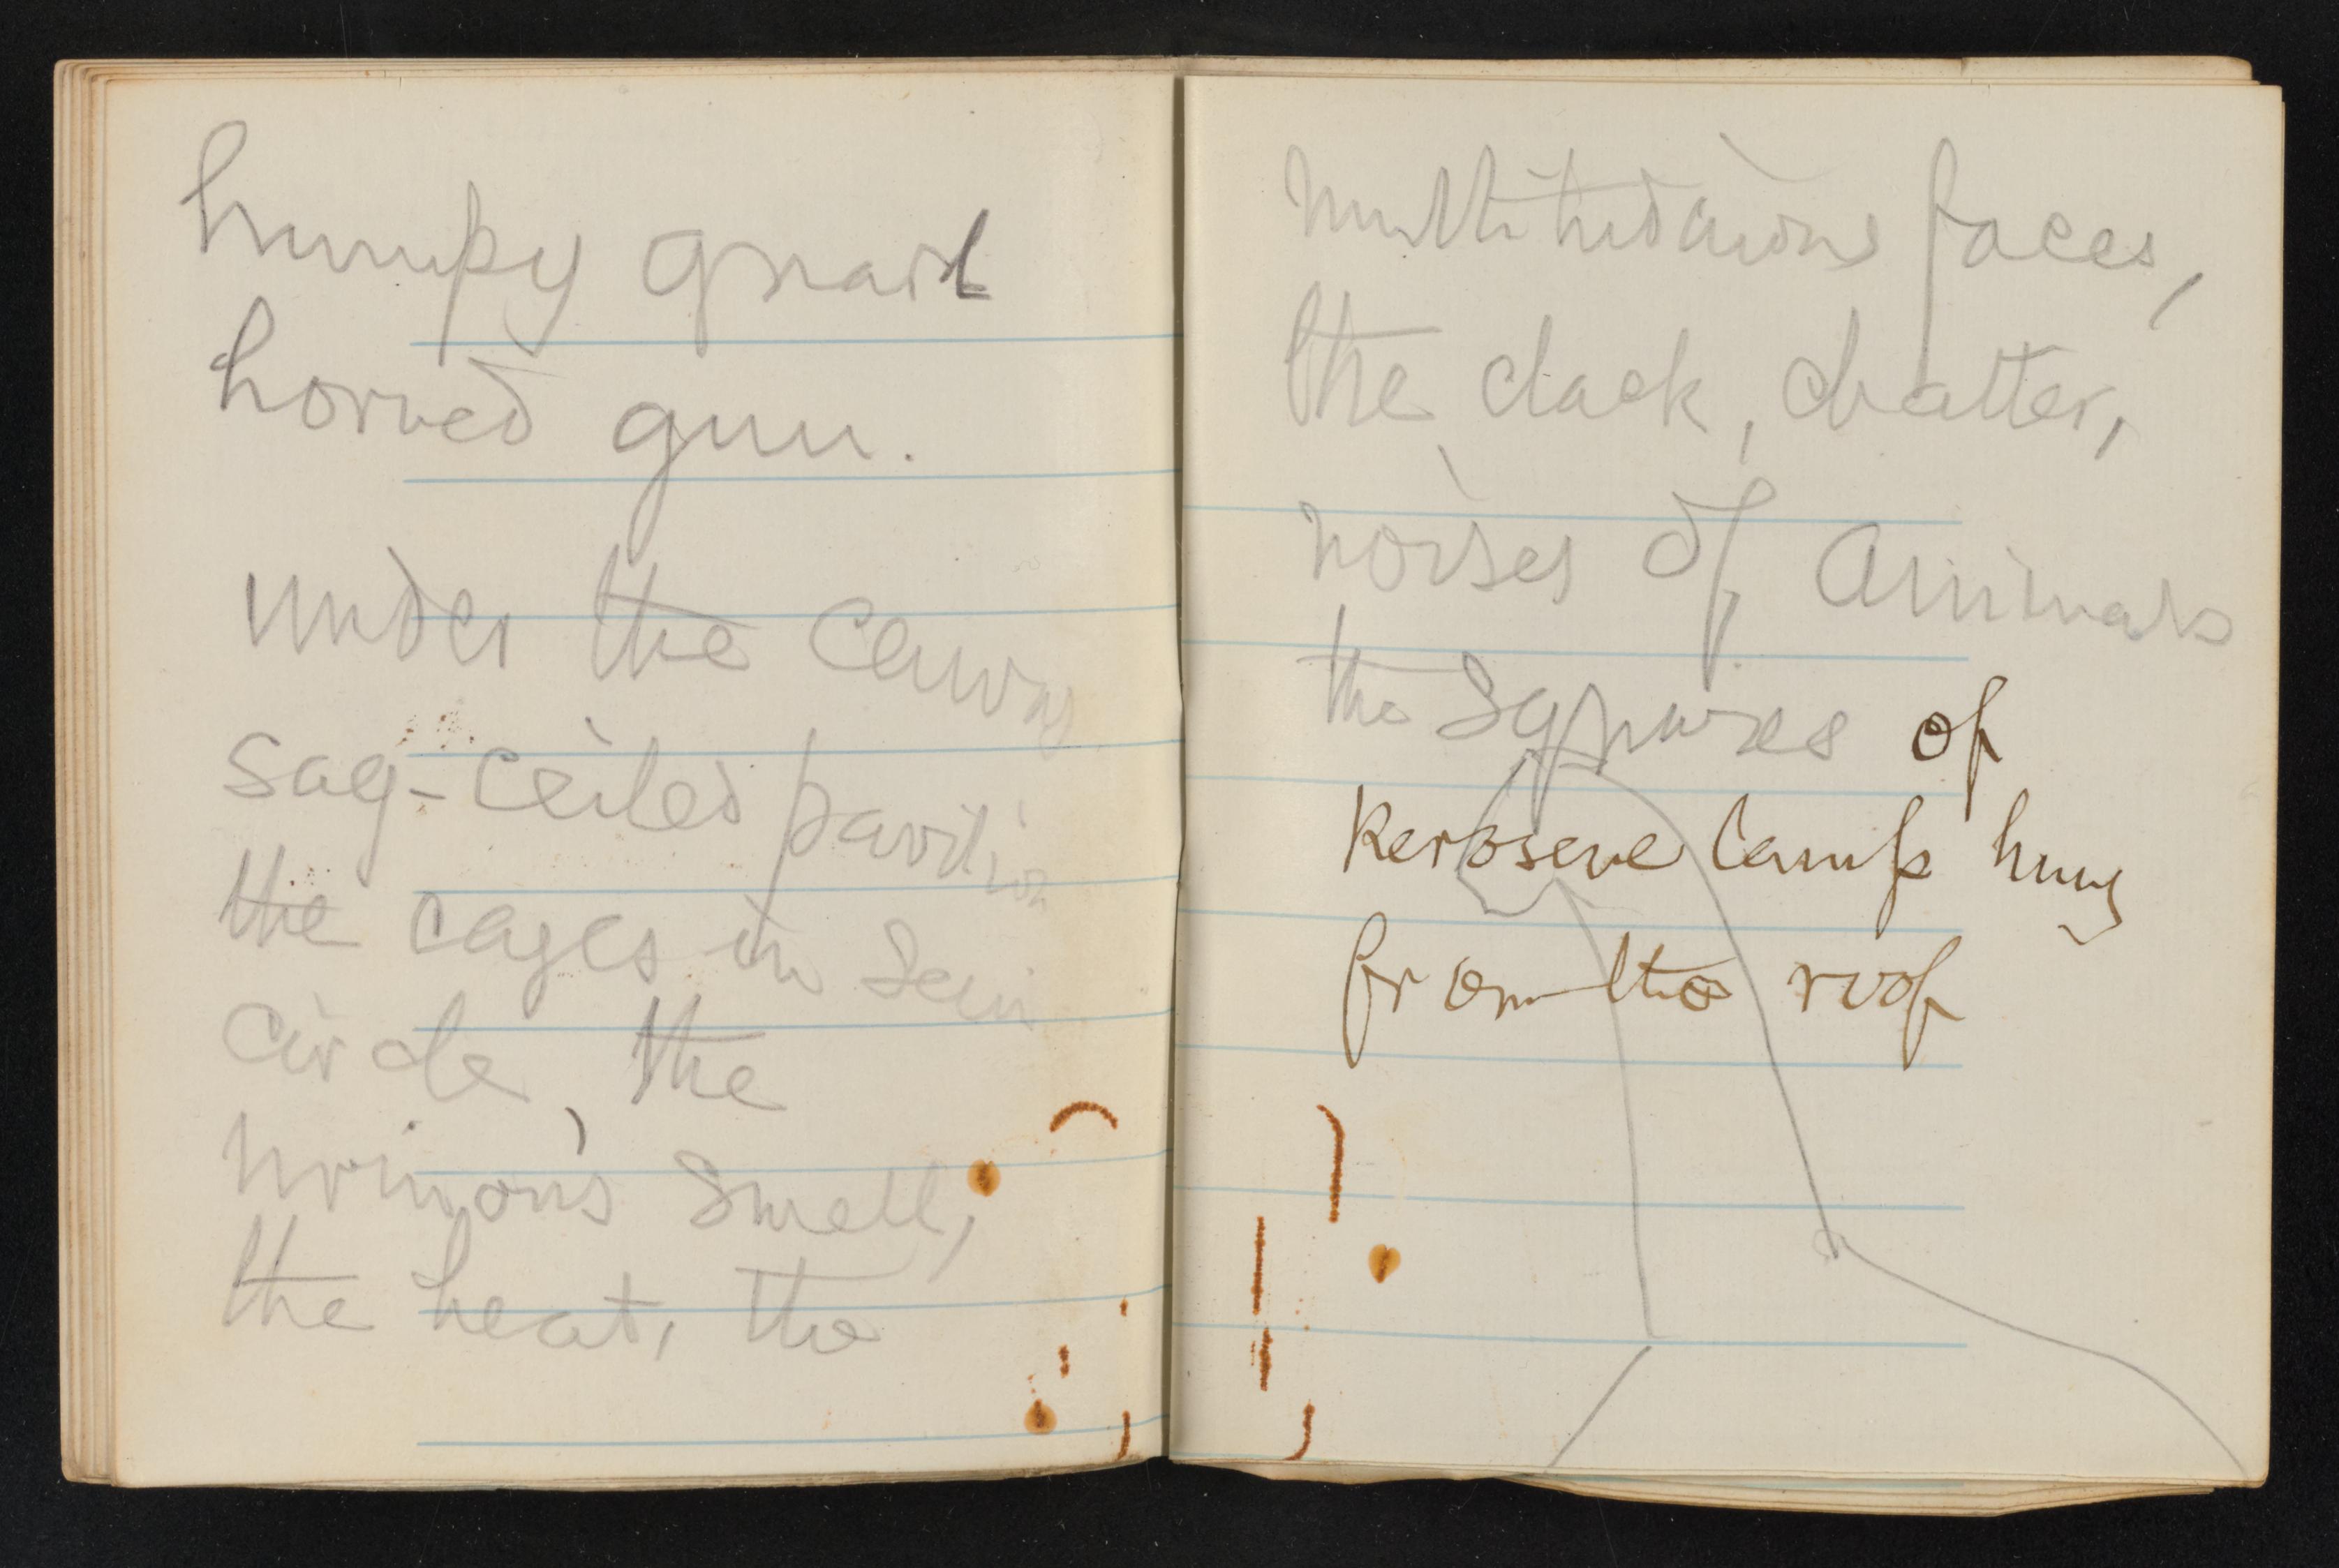 humpy gnarl
horned gnu.
under the canvas
sag-ceiled pavilion
the cages in semi
circle, the
smell,
the heat, the
multitudinous faces,
the clack, chatter,
noises of animals
the squares of
kerosene lamps hung
from the roof